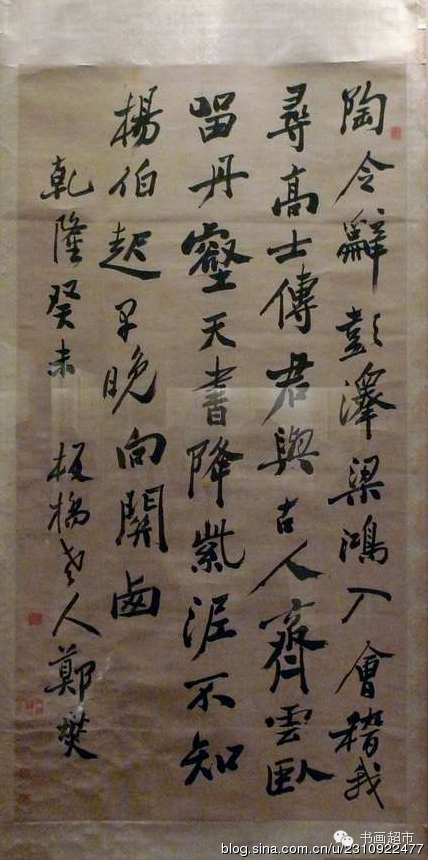 陶令辭彭澤梁鴻入會稽我
尋高士傳君與古人齊雲臥
留丹壑天書降紫泥不知
楊伯起早晚向關卥
乾隆癸未 板橋老人鄭燮
书画超市
blog.sina.com.cn/u/2310922477